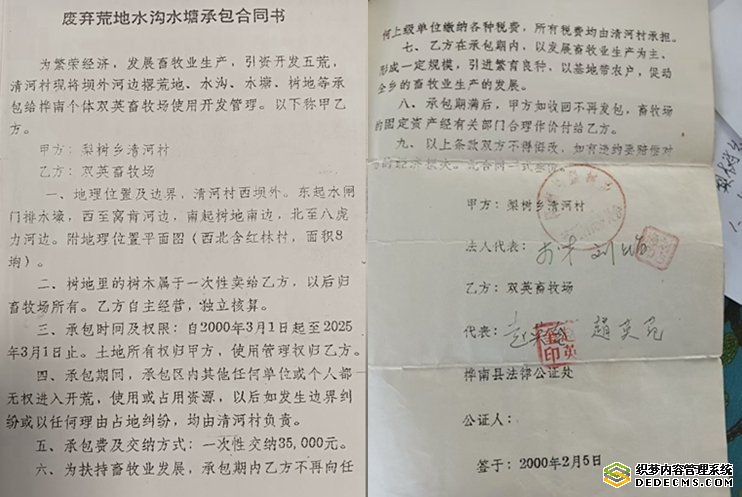 废弃荒地水沟水塘承包合同书
为繁荣经济，发展畜牧业生产，引资开发五荒，
清河村现将坝外河边撂荒地、水沟、水塘、树地等承
包给桦南个体双英畜牧场使用开发管理。以下称甲乙
方。
甲方：梨树乡清河村
乙方：双英畜牧场
一、地理位置及边界，清河村西坝外。东起水闸
门排水壕，西至窝肯河边，南起树地南边，北至八虎
力河边。附地理位置平面图（西北含红林村，面积8
垧）。
二、树地里的树木属于一次性卖给乙方，以后归
畜牧场所有。乙方自主经营，独立核算。
三、承包时间及权限：自2000年3月1日起至2025
年3月1日止。土地所有权归甲方，使用管理权归乙方。
四、承包期间，承包区内其他任何单位或个人都
无权进入开荒，使用或占用资源，以后如发生边界纠
纷或以任何理由占地纠纷，均由清河村负责。
五、承包费及交纳方式：一次性交纳35,000元。
六、为扶持畜牧业发展，承包期内乙方不再向任
何上级单位缴纳各种税费，所有税费均由清河村承担。
七、乙方在承包期内，以发展畜牧业生产为主，
形成一定规模，引进繁育良种，以基地带农户，促动
全乡的畜牧业生产的发展。
八、承包期满后，甲方如收回不再发包，畜牧场
的固定资产经有关部门合理作价付给乙方。
九、以上条款双方不得悔改，如有违约要赔偿对
方的经济损失。此合同一式叁份
甲方：梨树乡清河村
法人代表：
乙方：双英畜牧场
代表：
桦南县法律公证处
公证人：
签于：2000年2月5日
织梦内容管理系统
DEDECMS.COM